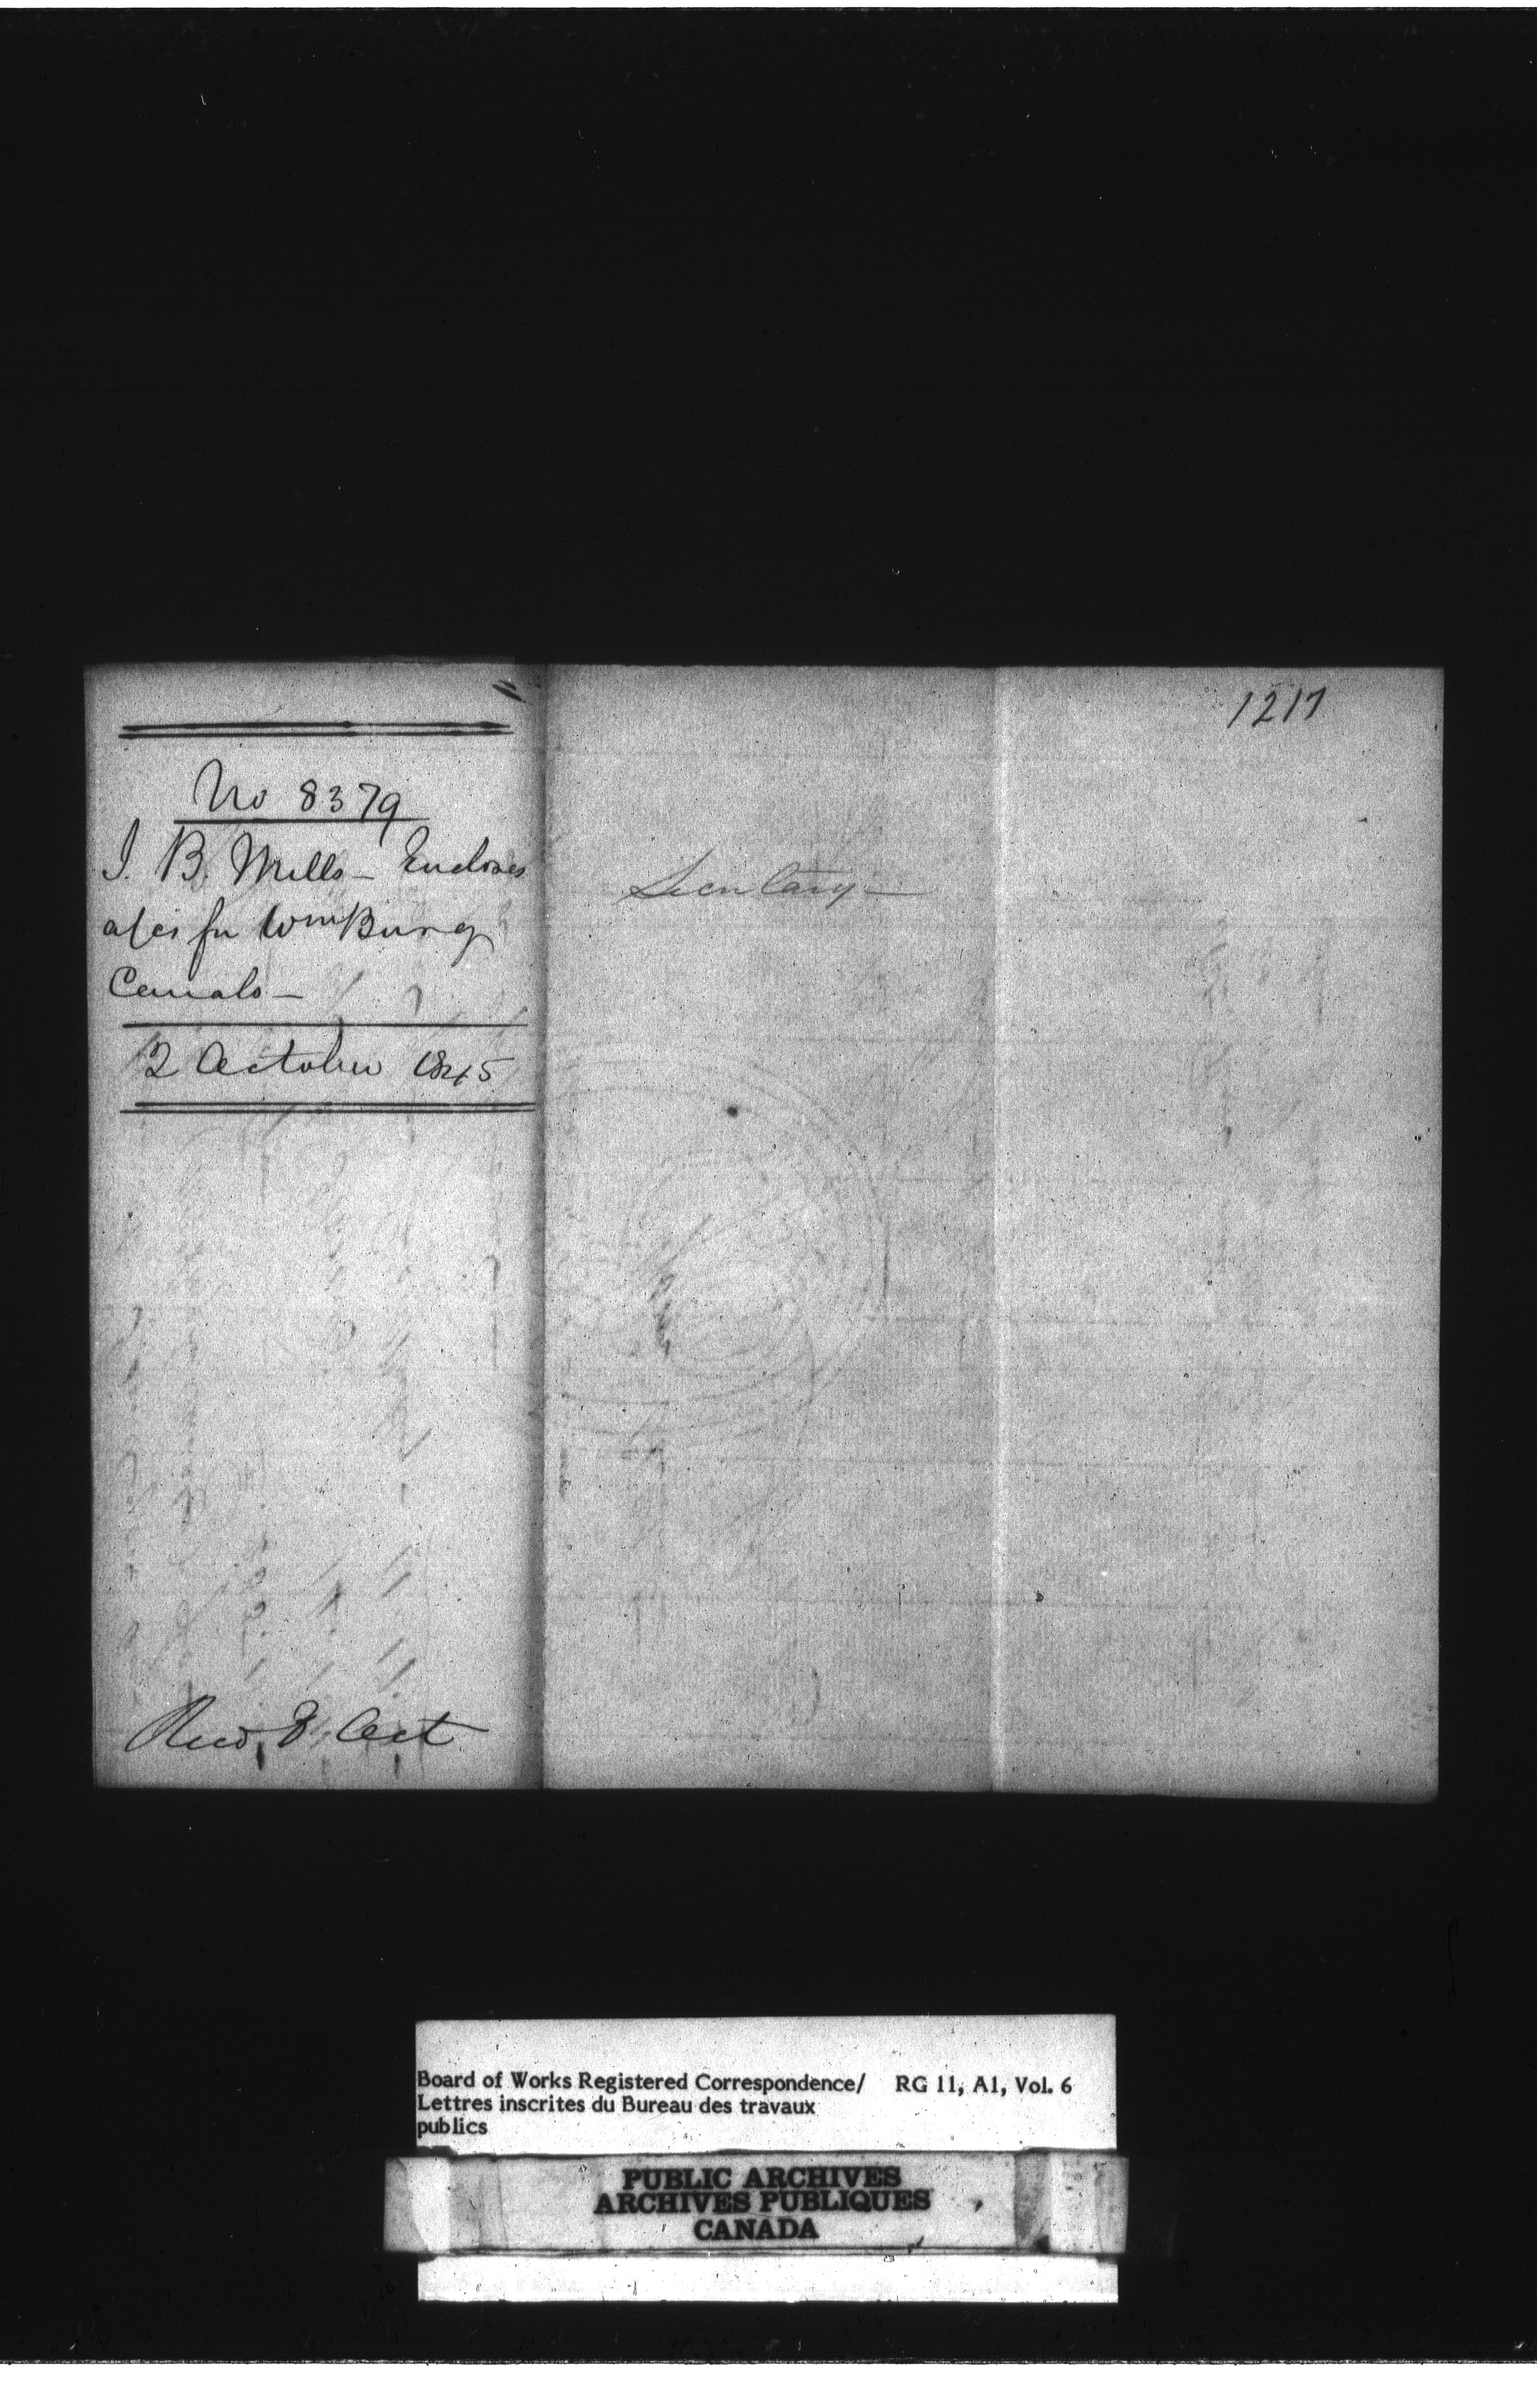 No 8379
J. B. Mills - Encloses
a/cs for WmBurg
Canals -
2 October 1845
Recd, 8, Oct
Secretary -
1217
Board of Works Registered Correspondence/ RG 11, A1, Vol. 6
Lettres inscrites du Bureau des travaux
publics
PUBLIC ARCHIVES
ARCHIVES PUBLIQUES
CANADA